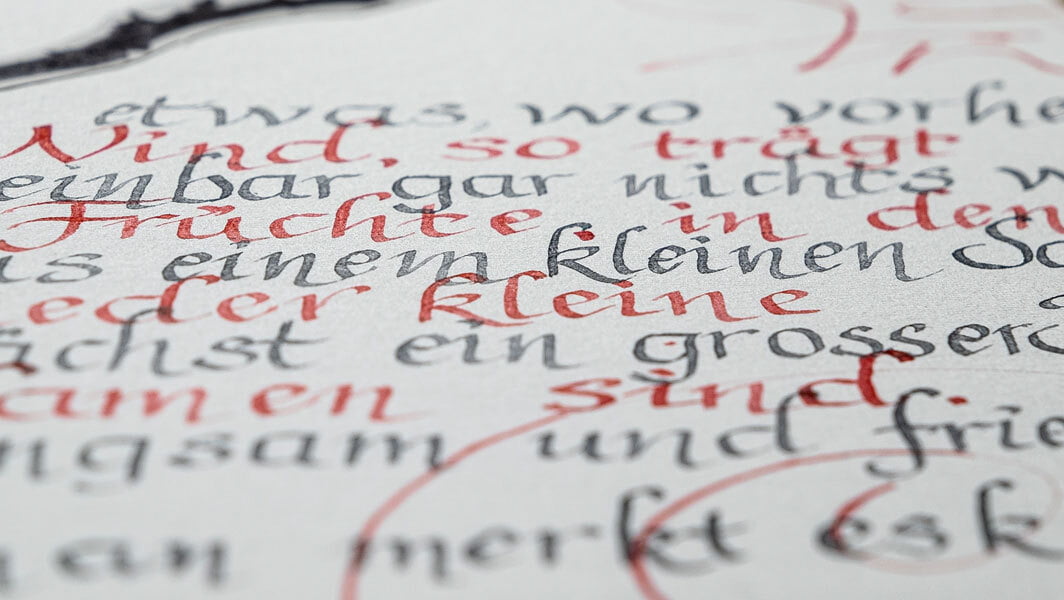 etwas, wo vorhe
Wind, so trägt
einbar gar nichts w
Früchte in den
us einem kleinen Sa
eder kleine
ächst ein grosser
amen sind.
ngsam und frie
an merkt es k